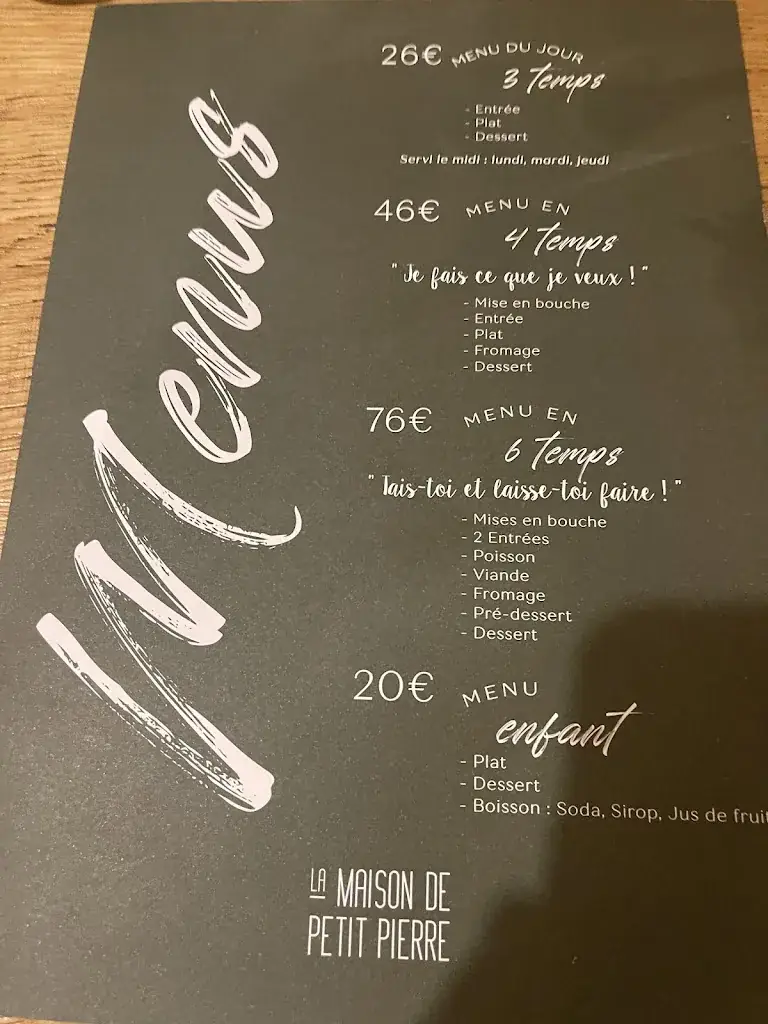 Menus
26€ MENU DU JOUR
3 Temps
- Entrée
- Plat
- Dessert
Servi le midi : lundi, mardi, jeudi
46€ MENU EN
4 Temps
"Je fais ce que je veux !"
- Mise en bouche
- Entrée
- Plat
- Fromage
- Dessert
76€ MENU EN
6 Temps
"Tais-toi et laisse-toi faire !"
- Mises en bouche
- 2 Entrées
- Poisson
- Viande
- Fromage
- Pré-dessert
- Dessert
20€ MENU
enfant
- Plat
- Dessert
- Boisson : Soda, Sirop, Jus de fruit
LA MAISON DE
PETIT PIERRE